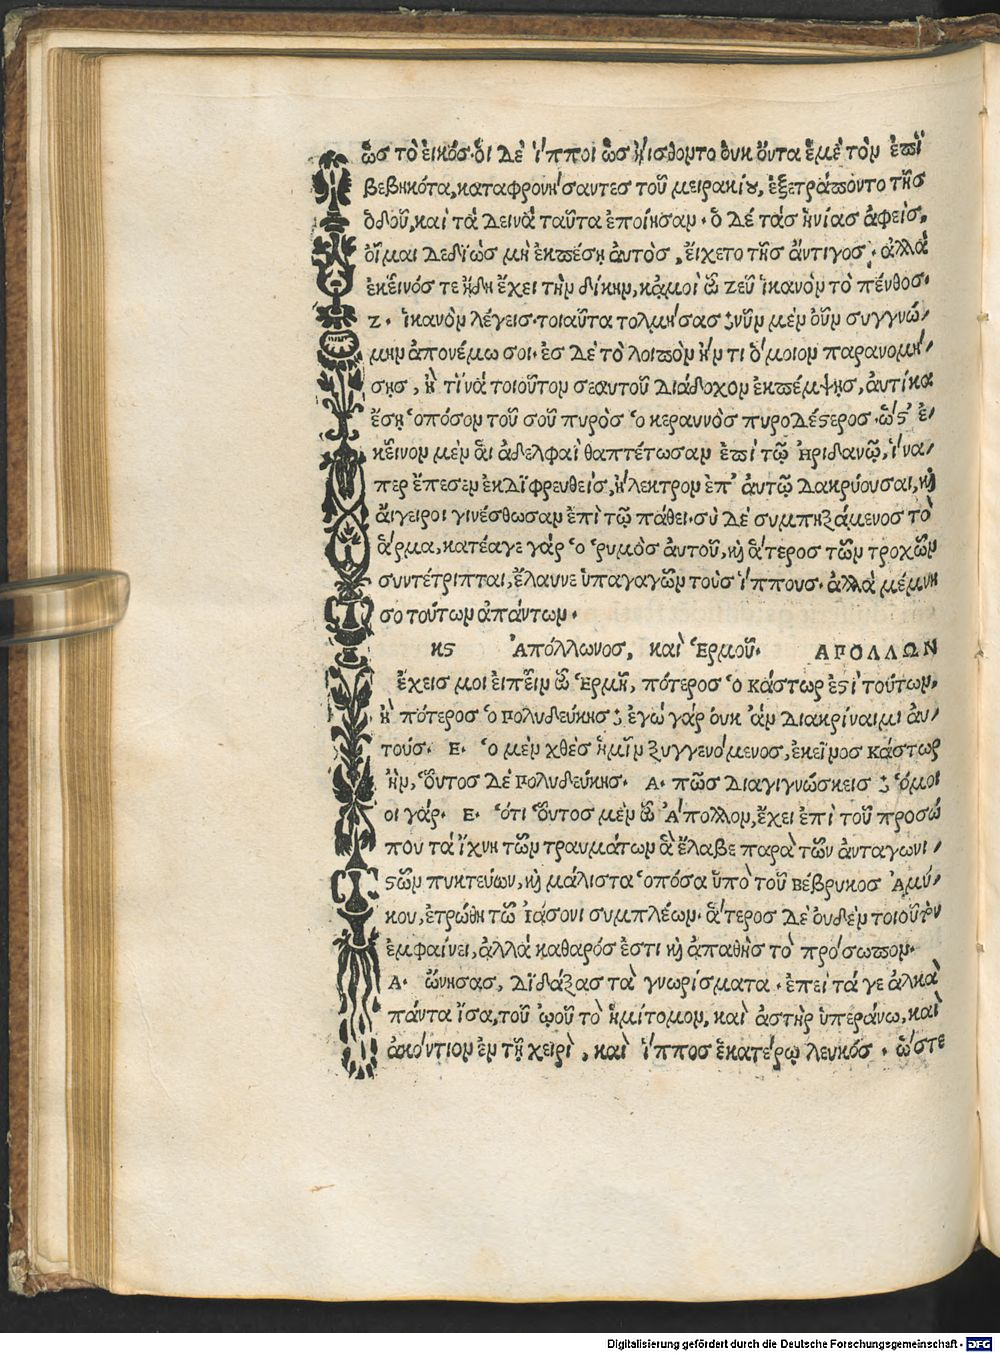 ὣς τὸ εἰκός. ὁι δὲ ἵπποι ὡς ᾔισθοντο ὀυκ ὄντα ἐμὲ τὸν ἐπι
βεβηκότα, καταφρονήσαντες τοῦ μειρακίου, ἐξετράποντο τῆς
ὁδοῦ, καὶ τὰ δεινὰ ταῦτα ἐποίησαν. ὁ δὲ τὰς ἡνίας ἀφεὶς,
οἶμαι δεδιὼς μὴ ἐκπέσῃ ἀυτὸς, ἔιχετο τῆς ἄντιγος. ἀλλὰ
ἐκεῖνός τε ἤδη ἔχει τὴν δίκην, κἀμοὶ ὦ ζεῦ ἱκανὸν τὸ πένθος.
Ζ. ἱκανὸν λέγεις. τοιαῦτα τολμήσας; νῦν μὲν οὖν συγγνώ/
μην ἀπονέμω σοι. ἐς δὲ τὸ λοιπὸν ἤν τι ὅμοιον παρανομή/
σῃς, ἤ τινα τοιοῦτον σεαυτοῦ διάδοχον ἐκπέμψῃς, ἀυτίκα
ἔσῃ ὁπόσον τοῦ σοῦ πυρὸς ὁ κεραυνὸς πυροδέςερος. ὥς ἐ/
κεῖνον μὲν ἁι ἀδελφαὶ θαπτέτωσαν ἐπὶ τῷ ἠριδανῷ, ἵνα/
περ ἔπεσεν ἐκδιφρευθεὶς, ἤλεκτρον ἐπ' ἀυτῷ δακρύουσαι, κὶ
ἄιγειροι γινέσθωσαν ἐπὶ τῷ πάθει. σὺ δὲ συμπηξάμενος τὸ
ἅρμα, κατέαγε γὰρ ὁ ῥυμὸς ἀυτοῦ, κὶ ἅτερος τῶν τροχῶν
συντέτριπται, ἔλαυνε ὑπαγαγὼν τοὺς ἵππους. ἀλλὰ μέμνη
σο τούτων ἁπάντων.
κς Ἀπόλλωνος, καὶ Ἑρμοῦ. ΑΠΟΛΛΩΝ
ἔχεις μοι ἐιπεῖν ὦ Ἑρμῆ, πότερος ὁ κάστωρ ἐςὶ τούτων,
ἢ πότερος ὁ πολυδεύκης; ἐγὼ γὰρ ὀυκ ἂν διακρίναιμι ἀυ/
τούς. Ε. ὁ μὲν χθὲς ἡμῖν ξυγγενόμενος, ἐκεῖνος κάστωρ
ἦν, ὅυτος δὲ πολυδεύκης. Α. πῶς διαγιγνώσκεις; ὅμοι
οι γάρ. Ε. ὅτι ὅυτος μὲν ὦ Ἄπολλον, ἔχει ἐπὶ τοῦ προσώ
που τὰ ἴχνη τῶν τραυμάτων ἃ ἔλαβε παρὰ τῶν ἀνταγωνι/
ςῶν πυκτεύων, κὶ μάλιστα ὁπόσα ὑπὸ τοῦ βέβρυκος Ἀμύ/
κου, ἐτρώθη τῷ Ἰάσονι συμπλέων. ἅτερος δὲ ὀυδὲν τοιοῦτον
ἐμφαίνει, ἀλλὰ καθαρός ἐστι κὶ ἀπαθὴς τὸ πρόσωπον.
Α. ὤνησας, διδάξας τὰ γνωρίσματα. ἐπεὶ τά γε ἀλκὰ
πάντα ἴσα, τοῦ ᾠοῦ τὸ ἡμίτομον, καὶ ἀστὴρ ὑπεράνω, καὶ
ἀκόντιον ἐν τῇ χειρὶ, καὶ ἵππος ἑκατέρῳ λευκός. ὥστε
Digitalisierung gefördert durch die Deutsche Forschungsgemeinschaft - DFG